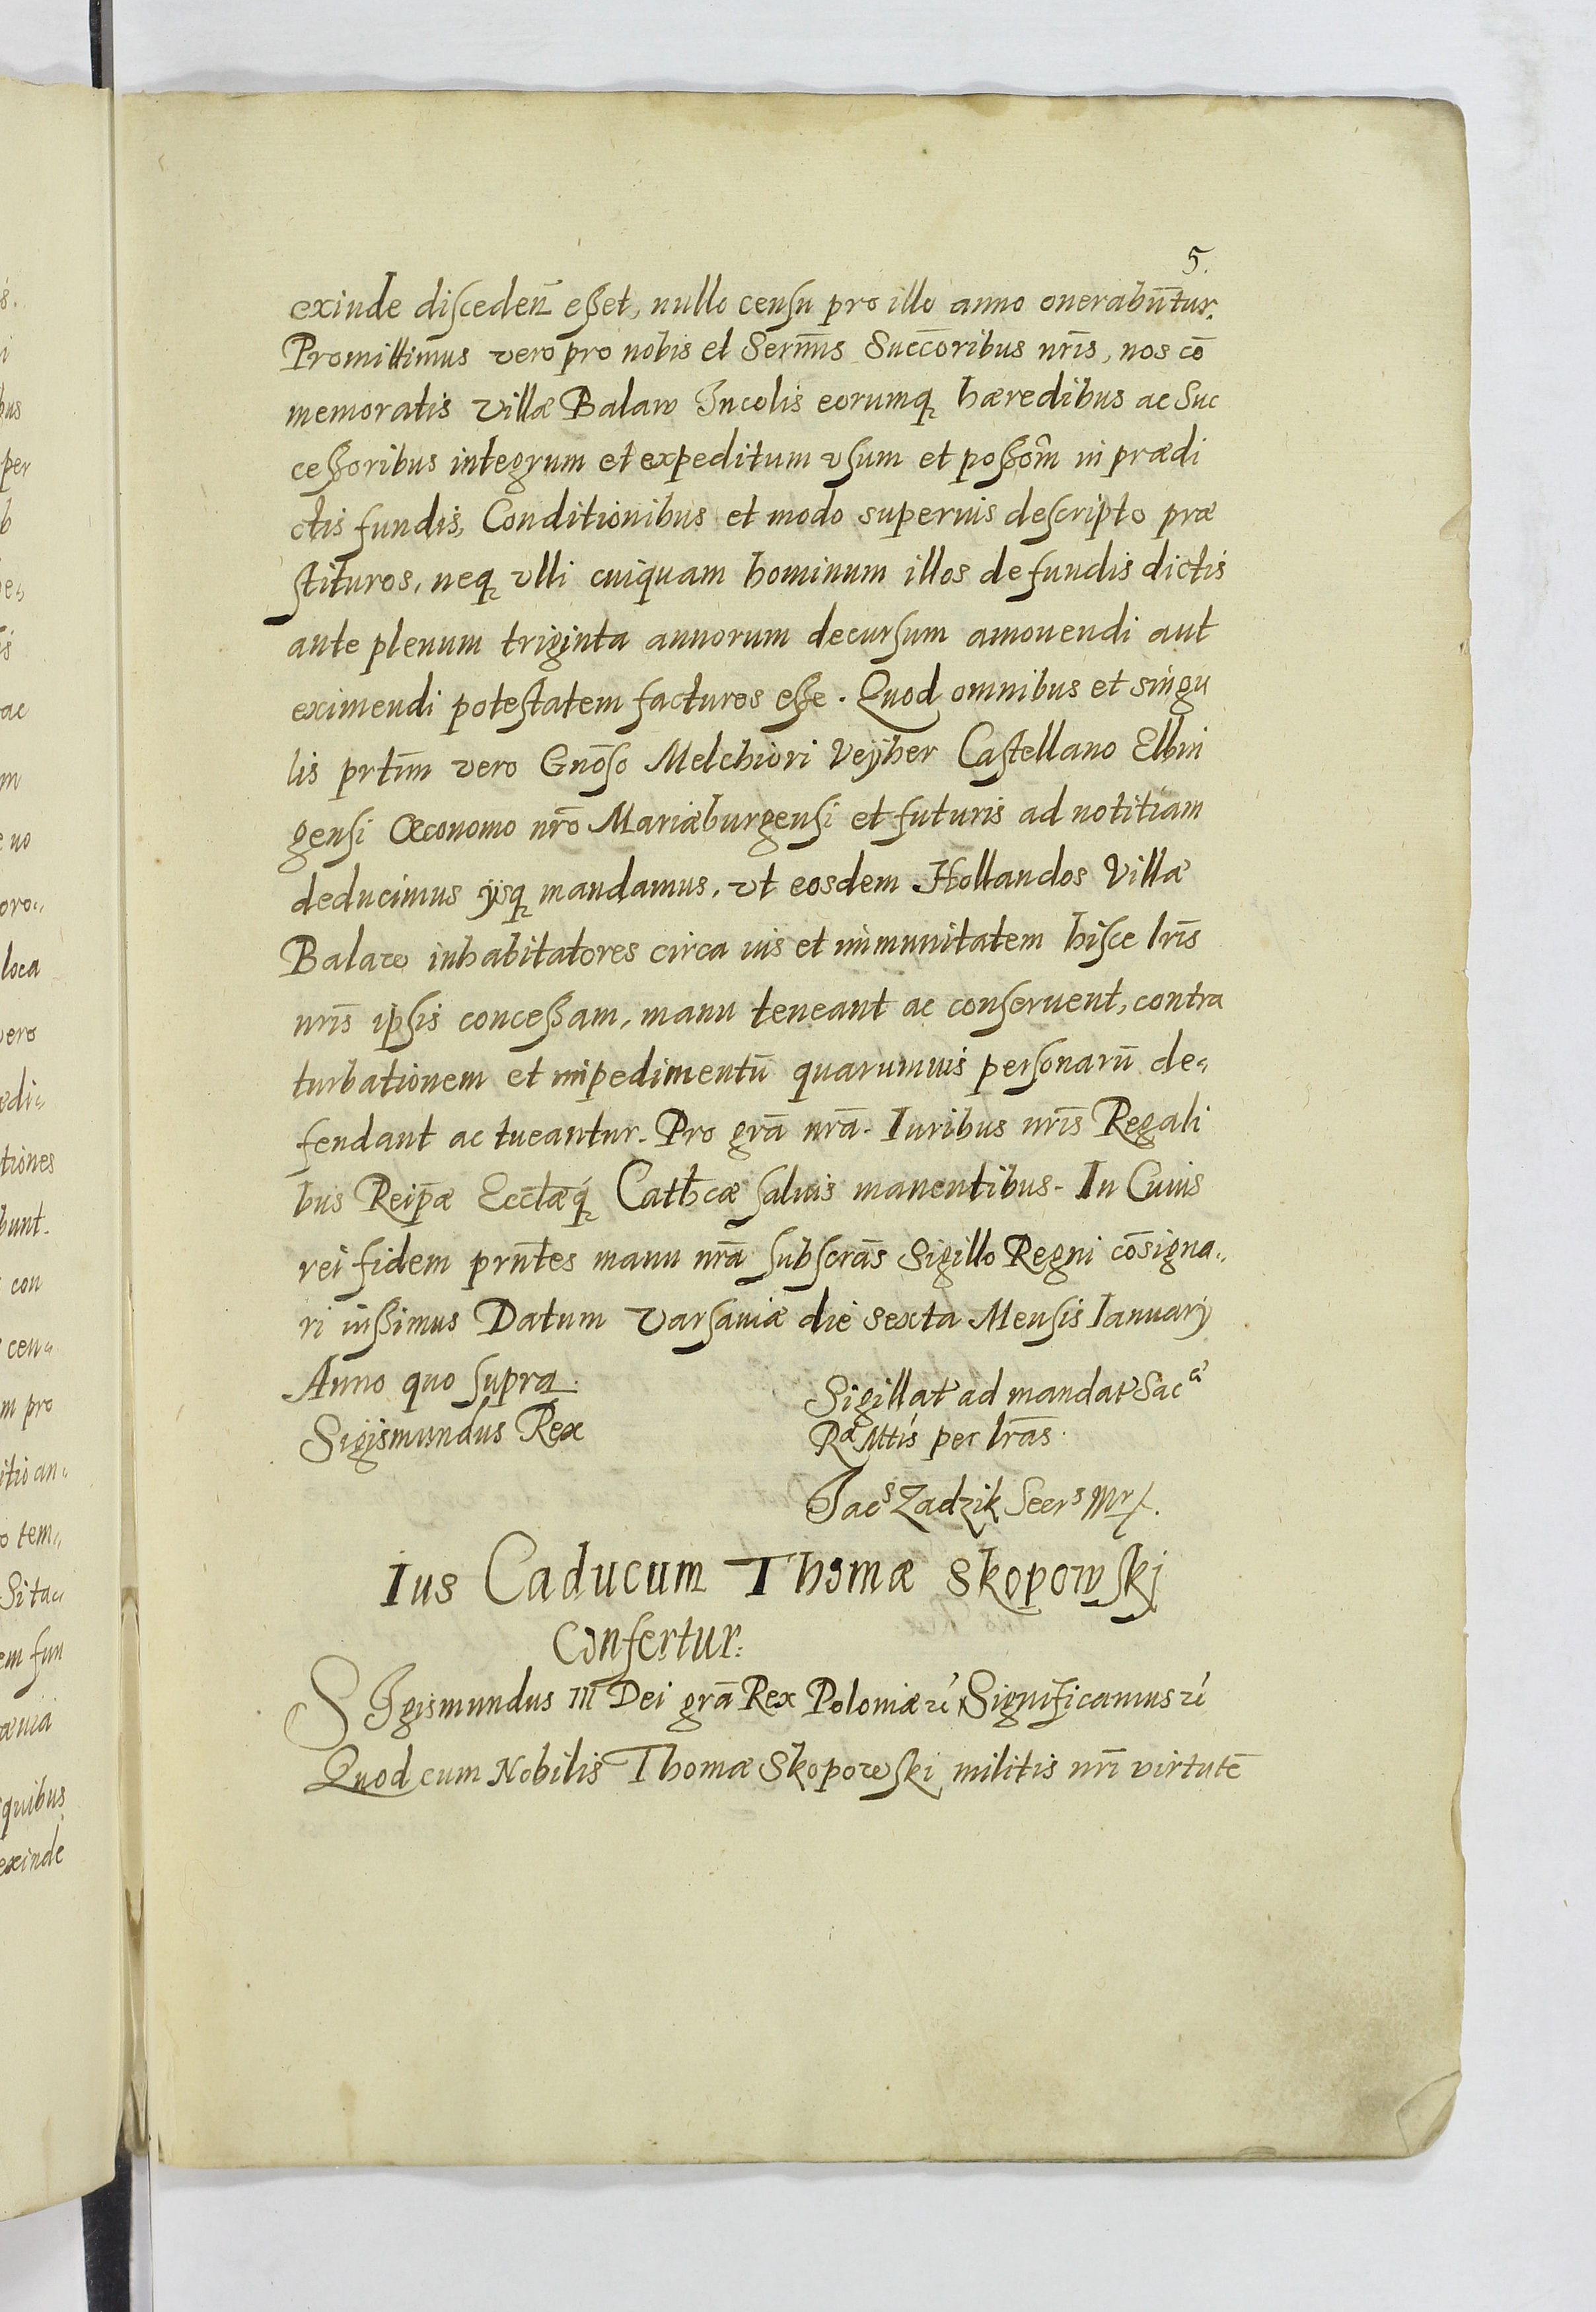 5.
exinde discedeñ esset, nullo censu pro illo anno onerabūtur.
Promittimus vero pro nobis et Sermīs Succoribus nrīs, nos cō
memoratis villæ Balaw Incolis eorumq hæredibus ac Suc
cessoribus integrum et expeditum vsum et possom̂ in prædi
ctis fundis, Conditionibus et modo superius descripto præ
stituros, neq vlli cuiquam hominum illos de fundis dictis
ante plenum triginta annorum decursum amouendi aut
eximendi potestatem facturos esse. Quod omnibus et singu
lis prtīm vero Gnōso Melchiori Veÿher Castellano Elbin
gensi Œconomo nrō Mariæburgensi et futuris ad notitiam
deducimus ÿsq mandamus, vt eosdem Hollandos Villæ
Balaw inhabitatores circa ius et immunitatem hisce lrīs
nrīs ipsis concessam, manu teneant ac conseruent, contra
turbationem et impedimentū quarumuis personarū de„
fendant ac tueantur. Pro grā nrā. Iuribus nrīs Regali
bus Reip̄æ Eccl̄æq́ Cathcæ saluis manentibus. In Cuius
rei fidem prn̄tes manu nrā subscrās Sigillo Regni cōsigna„
ri iussimus Datum Varsauiæ die sexta Mensis Ianuarÿ
Anno quo supra.
Sigismundus Rex
Sigillat ad mandat Sac^a
R^a Mttis per lrās.
Jac^s Zadzik Secr^s Mr
Ius Caducum Thomæ Skopowskj
Confertur.
SIgismundus III Dei grā Rex Poloniæ &c Significamus &c
Quod cum Nobilis Thomæ Skopowski militis nrī virtutē
ś.
bus
per
ac
e no
oro„
loca
vero
ædi„
tiones
bunt.
con
cen„
m pro
itio an„
o tem„
Sitas
em fun
quibus
exinde